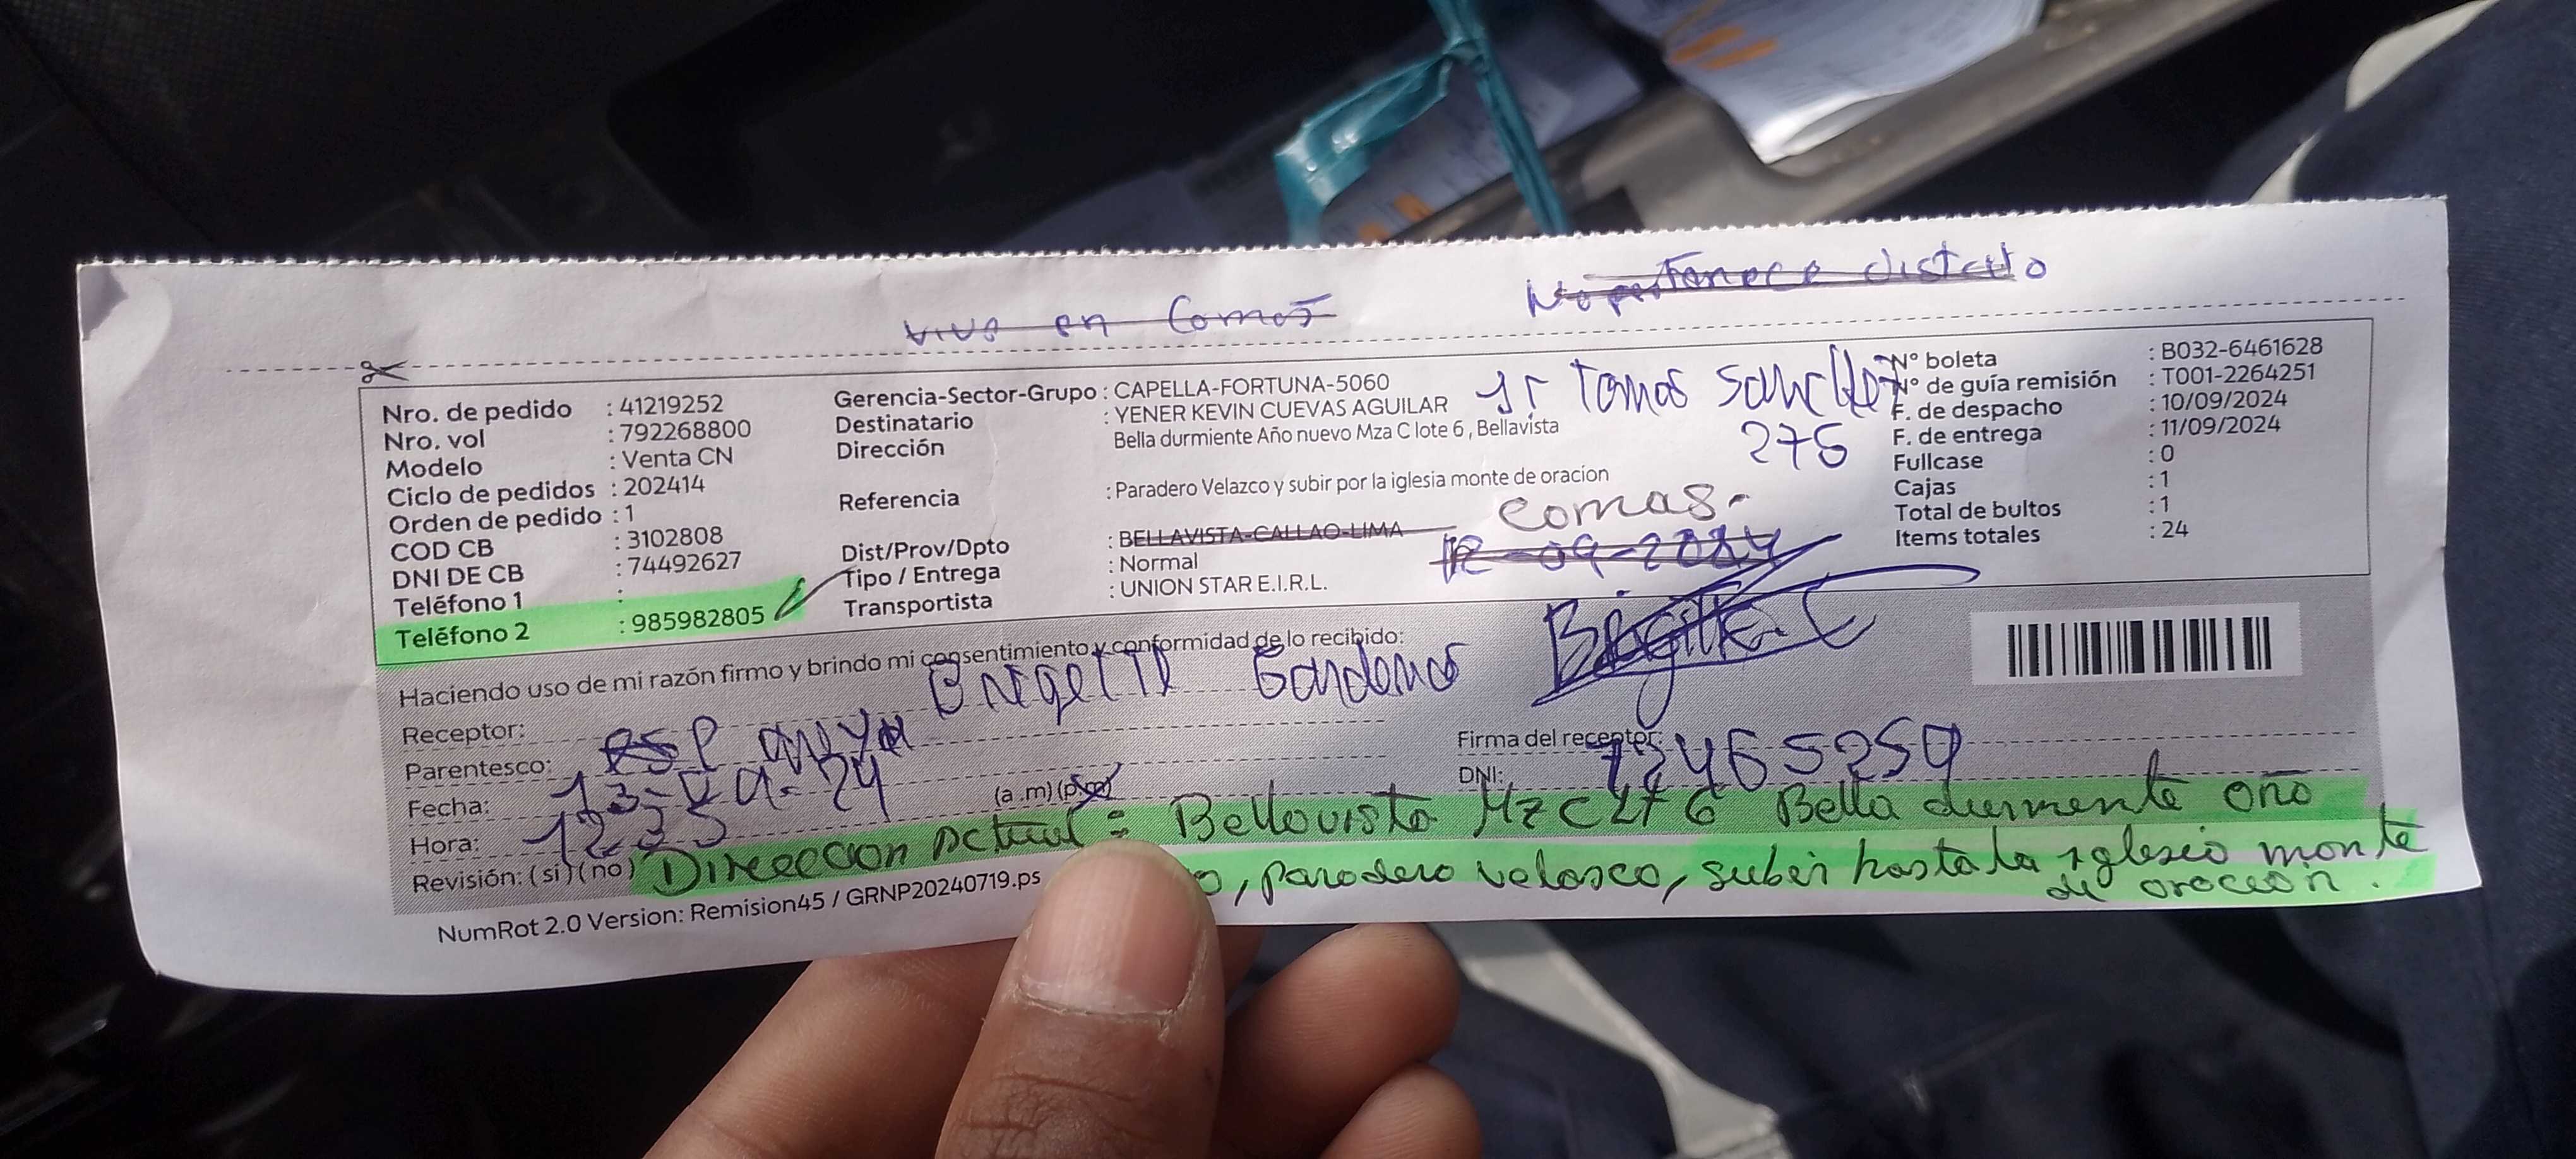 vivo en Comas
No pertenece distrito
Nro. de pedido : 41219252
Nro. vol : 792268800
Modelo : Venta CN
Ciclo de pedidos : 202414
Orden de pedido : 1
COD CB : 3102808
DNI DE CB : 74492627
Teléfono 1 :
Teléfono 2 : 985982805
Gerencia-Sector-Grupo : CAPELLA-FORTUNA-5060
Destinatario : YENER KEVIN CUEVAS AGUILAR
Dirección Bella durmiente Año nuevo Mza C lote 6 , Bellavista
Referencia : Paradero Velazco y subir por la iglesia monte de oracion
Dist/Prov/Dpto : BELLAVISTA-CALLAO-LIMA
Tipo / Entrega : Normal
Transportista : UNION STAR E.I.R.L.
Jr Tomas
275
comas.
12-09-2024
N° boleta : B032-6461628
N° de guía remisión : T001-2264251
F. de despacho : 10/09/2024
F. de entrega : 11/09/2024
Fullcase : 0
Cajas : 1
Total de bultos : 1
Items totales : 24
Haciendo uso de mi razón firmo y brindo mi consentimiento y conformidad de lo recibido:
Receptor:
Parentesco:
Fecha:
Hora: 12:35 (a.m) (p.m)
Firma del receptor:
DNI:
Revisión: (si) (no) Direccion Actual = Bellavista Mz C Lt 6 Bella durmiente año
, paradero velasco, subir hasta la iglesia monte
de oracion.
NumRot 2.0 Version: Remision45 / GRNP20240719.ps